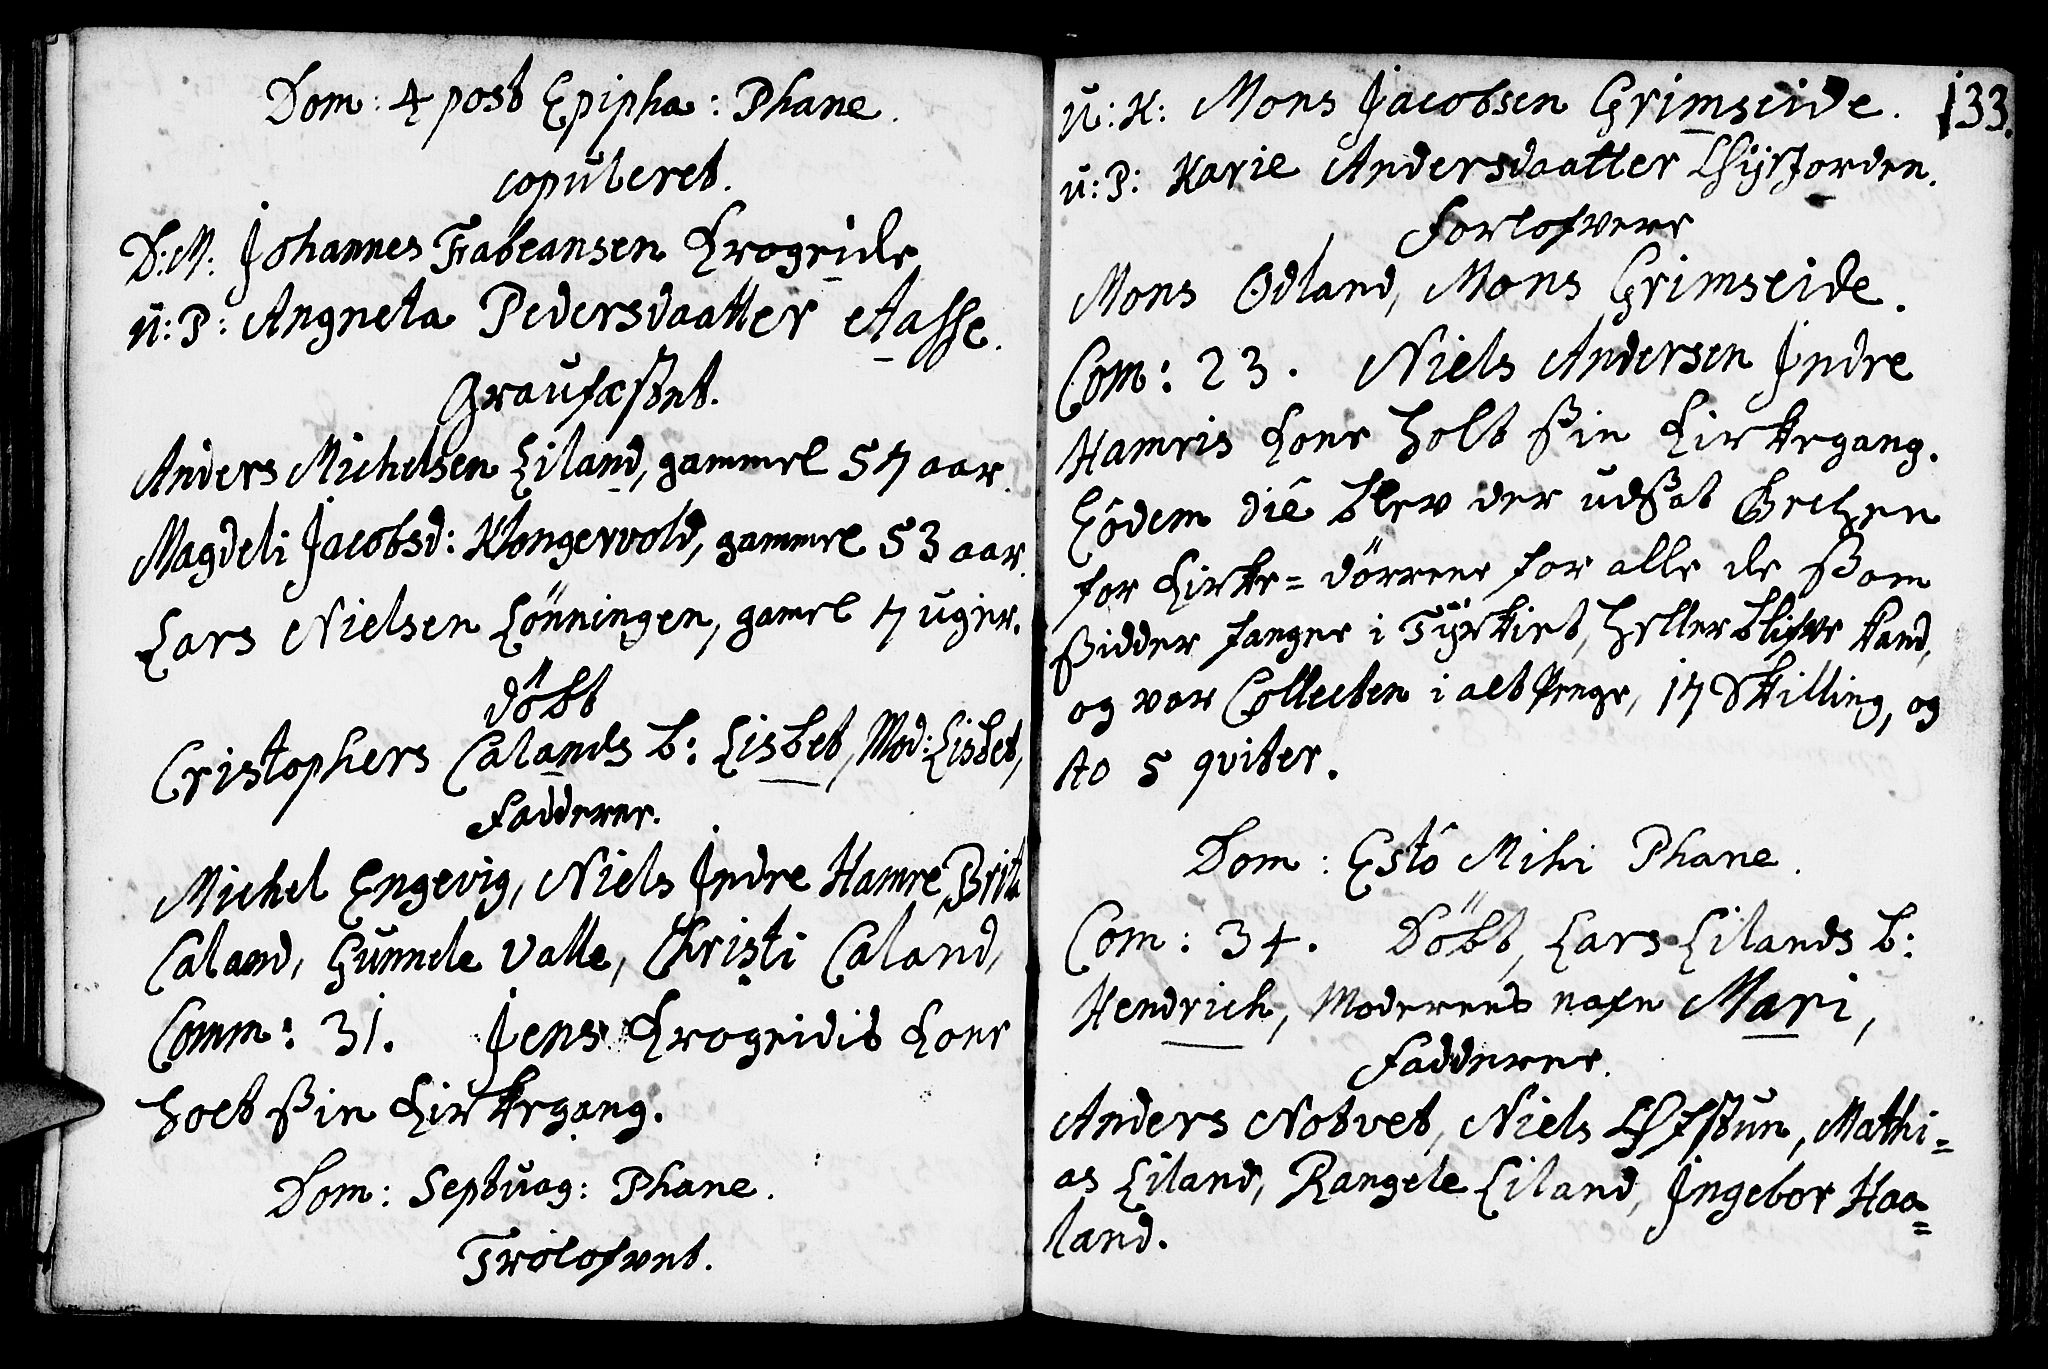 Dom: 4 post Epipha: Phane.
copuleret.
D: M: Johannes Fabeansen Krogeide
u: P: Angneta Pedersdaatter Aasse.
Graufæstet.
Anders Michelsen Liland, gammel 57 aar.
Magdeli Jacobsd: Klongervold, gammel 53 aar.
Lars Nielsen Lönningen, gamel 7 uger.
döbt
Cristophers Calands b: Lisbet, Mod: Lisbet,
Faddere.
Michel Engevig, Niels Indre Hamre, Brit
Caland, Gunnele Valle, Christi Caland,
Comm: 31. Jens Krogeidis Kone
holt sin Kirkegang.
Dom: Septuag: Phane.
Trolofvet.
133.
u: K: Mons Jacobsen Grimseide.
u: P: Karie Andersdaatter
Forlofvere
Mons Odland, Mons Grimseide.
Com: 23. Niels Andersen Indre
Hamris Kone holt sin Kirkegang.
Eodem die blev der udsat
for Kirke=dörrene for alle de som
sidder fanger i Tyrkiet, heller blifve kand,
og var Collecten i alt penge, 17 Skilling, og
to 5 qviter.
Dom: Esto Mihi Phane.
Com: 34. Döbt, Lars Lilands b:
Hendrich, Moderens nafn Mari,
Fadderne.
Anders Notvet, Niels Mathi=
as Liland, Rangele Liland, Ingebor Haa=
land.